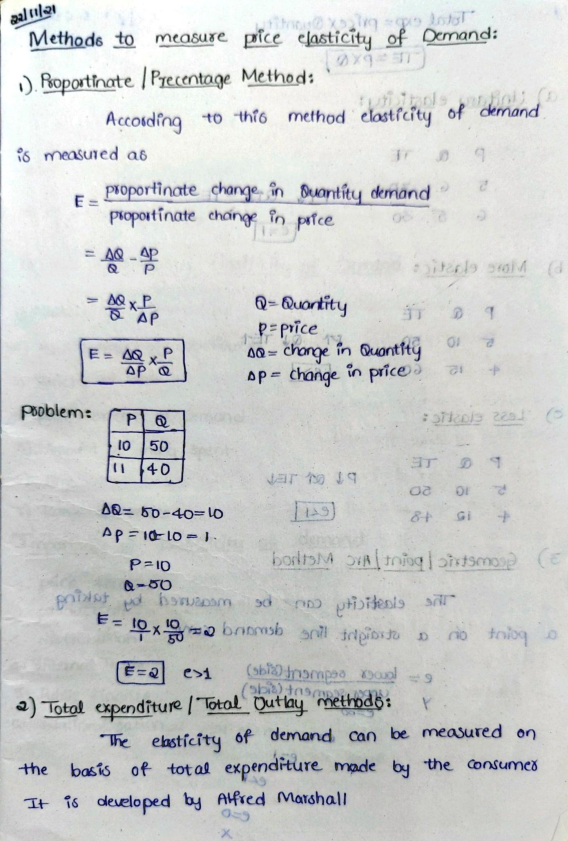 22/11/21
Methods to measure price elasticity of Demand:
1). Proportinate / Precentage Method:
According to this method elasticity of demand
is measured as
E = proportinate change in Quantity demand / proportinate change in price
= ΔQ/Q - ΔP/P
= ΔQ/Q x P/ΔP
Q = Quantity
P = price
E = ΔQ/ΔP x P/Q
ΔQ = change in Quantity
ΔP = change in price
Problem:
P Q
10 50
11 40
ΔQ = 50-40=10
ΔP = 10-10 = 1.
P=10
Q=50
E = 10/1 x 10/50 = 2
E=2 e>1
2) Total expenditure / Total Outlay methods:
The elasticity of demand can be measured on
the basis of total expenditure made by the consumer
It is developed by Alfred Marshall